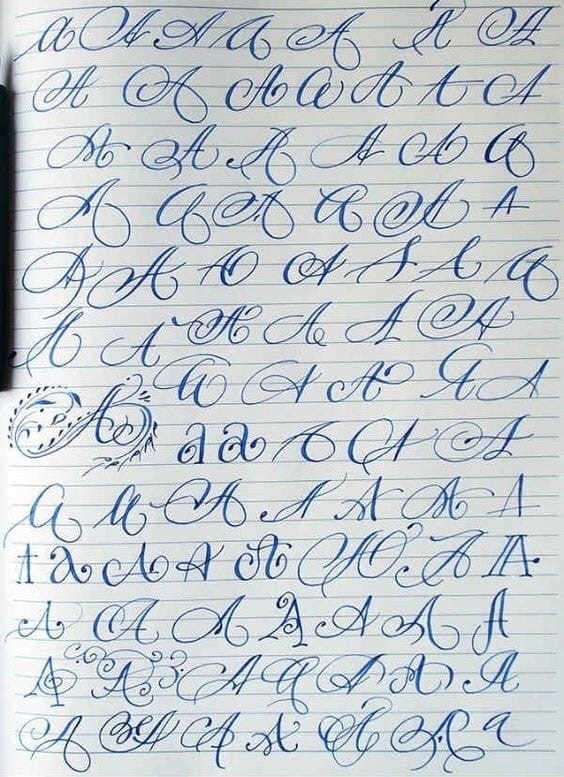 a A A A A A A
A A A a A A A
A A A A A A
A A A A A A
A A A A A A A
A A A A A A
A A A A A
A a a A A A
A A A A A A A
A a A A A A A A
A A A A A A A
A A A A A A A
A A A A A A a